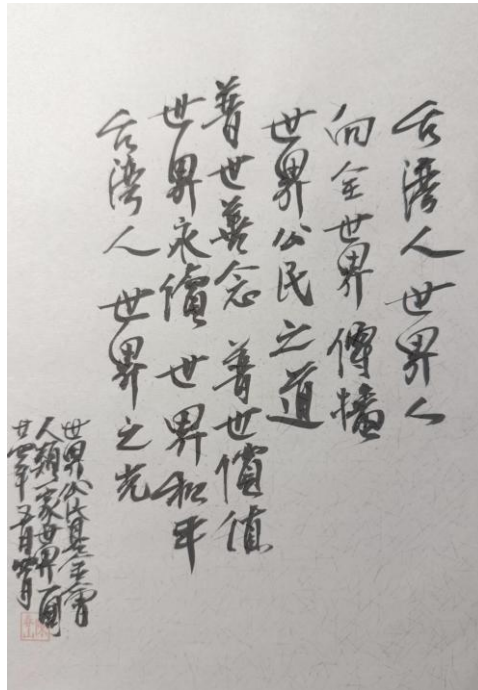 台湾人世界人
向全世界傳播
世界公民之道
普世善念 普世價值
世界永續 世界和平
台湾人 世界之光
世界公民
人類一家世界一
廿四年 月 日